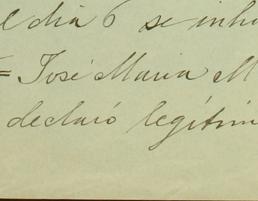 el dia 6 se inh
= José Maria M
declaró legítim